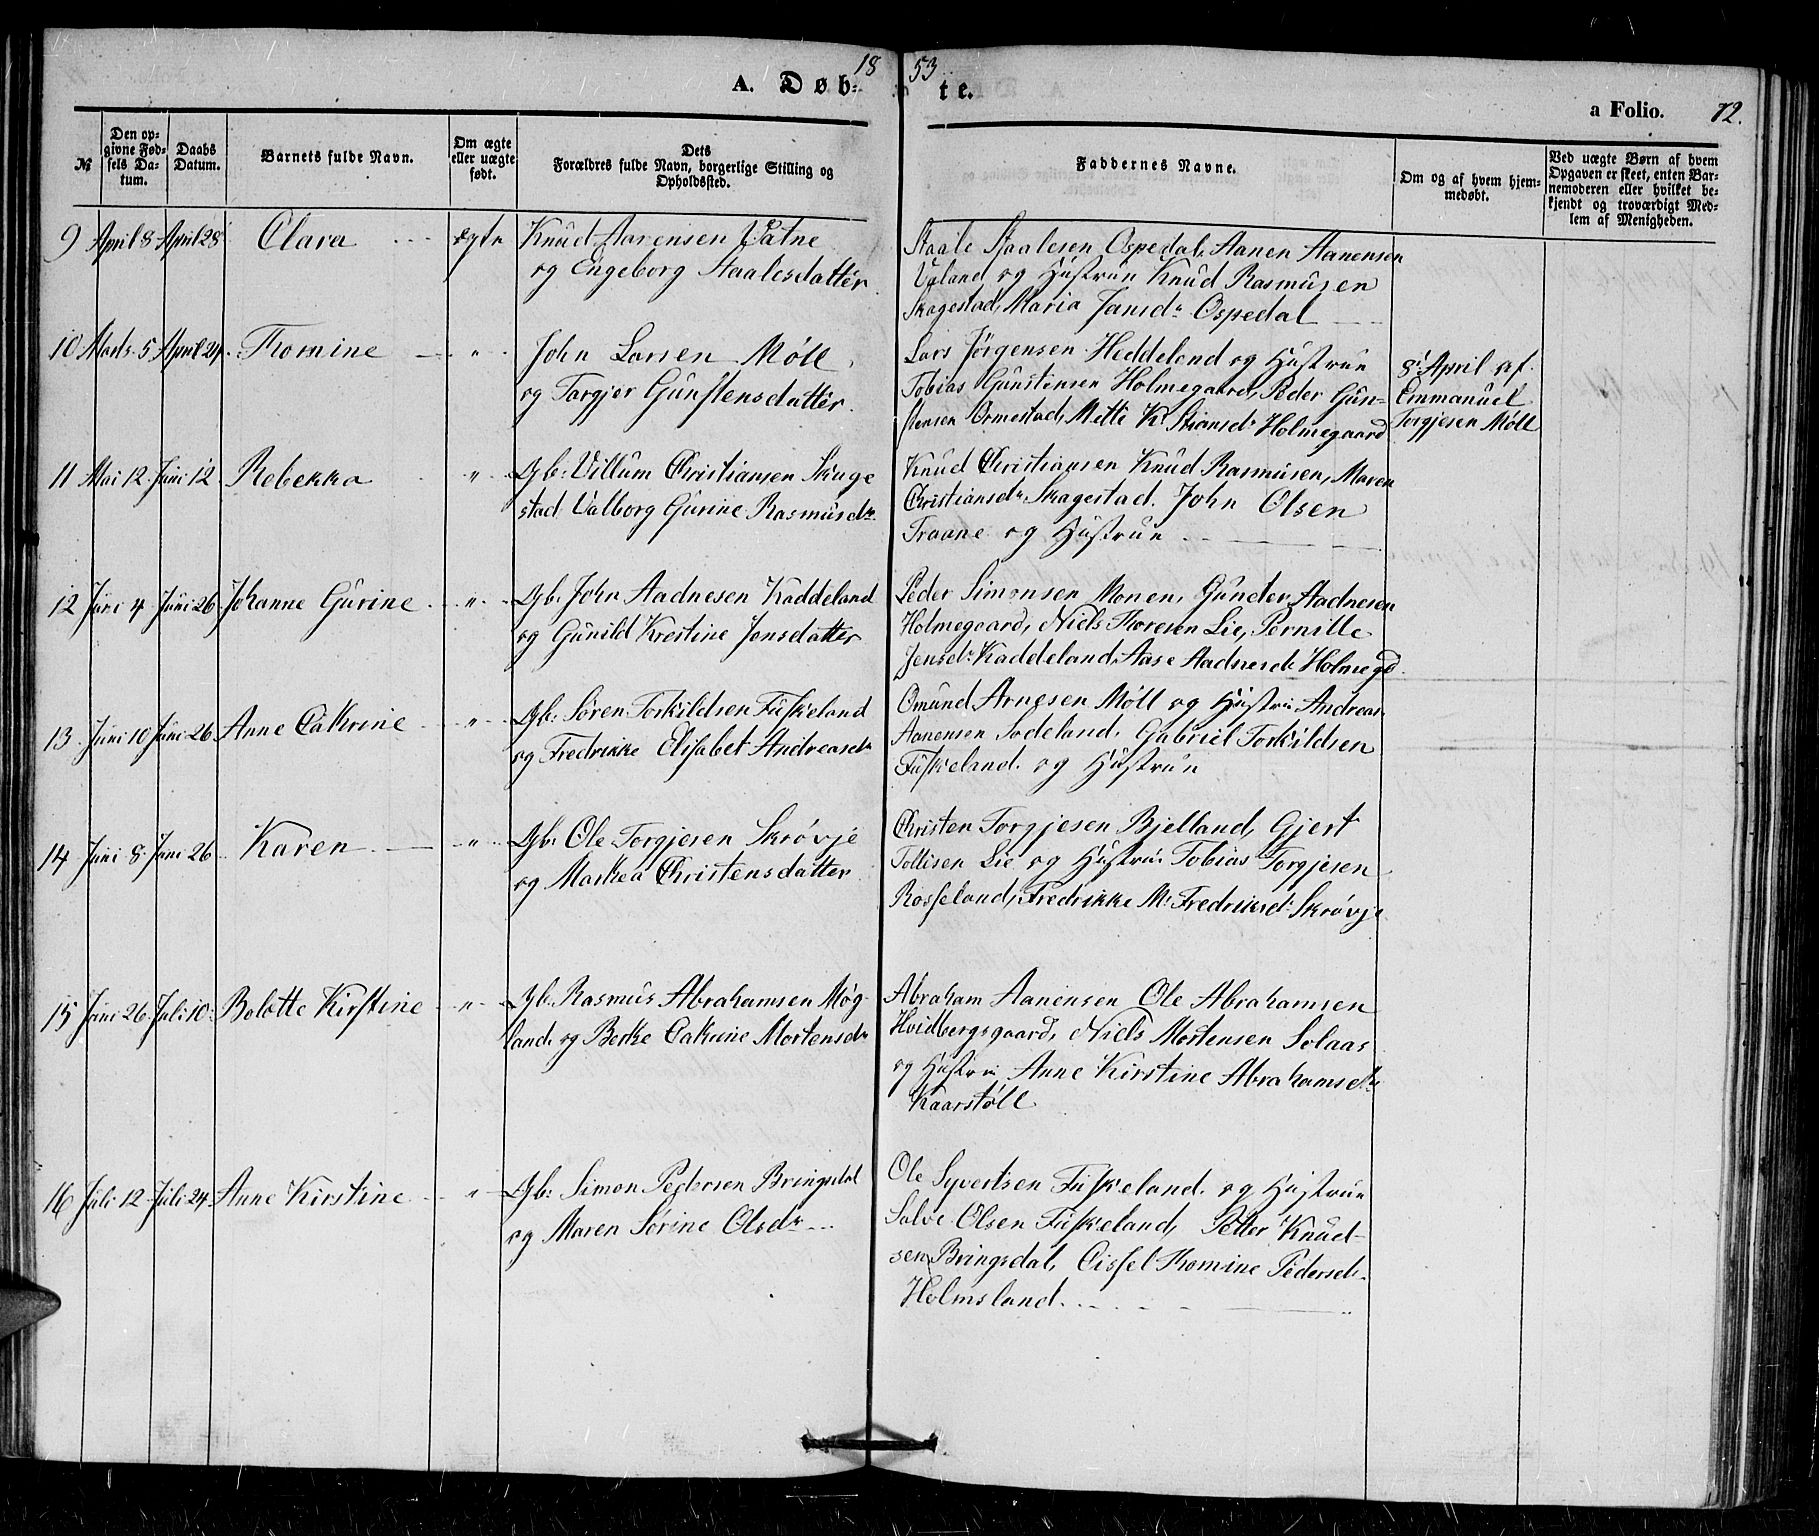 1853
A. Døb= te.
a Folio. 12.
№
Den op=
givne Fød=
sels Da=
tum.
Daabs
Datum.
Barnets fulde Navn.
Om ægte
eller uægte
født.
Dets
Forældres fulde Navn, borgerlige Stilling og
Opholdssted.
Faddernes Navne.
Om og af hvem hjem=
medøbt.
Ved uægte Børn af hvem
Opgaven er skeet, enten Bar=
nemoderen eller hvilket be=
kjendt og troværdigt Med=
lem af Menigheden.
9 April 8 April 28 Clara ægte Knud Aarensen Vatne
og Engeborg Staalesdatter
Staale Staalesen Ospedal, Aanen Aanensen
Usland og Hustrun Knud Rasmusen
Skagestad, Maria Jansdr Ospedal
10 Marts 5 April 24 Tromine " John Larsen Møll
og Torgjer Gunstensdatter
Lars Jørgensen Heddeland og Hustrun
Tobias Gunstensen Holmegaard, Peder Gun=
stensen Ormestad, Mette K. Stiansdr Holmegaard
8' April af
Emmanuel
Torgjesen Møll
11 Mai 12 Juni 12 Rebekka " Gb: Villum Christiansen Skage
stad Valborg Gurine Rasmusdr
Knud Christiansen Knud Rasmusen, Maren
Christiansdr Skagestad. John Olsen
Traane og Hustrun
12 Juni 4 Juni 26 Johanne Gurine " Gb. John Aadnesen Kaddeland
og Gunild Kristine Jensdatter
Peder Simonsen Monen, Gunder Aadnesen
Holmegaard, Niels Thoresen Lie, Pernille
Jensdr Kaddeland, Aase Aadnesdr Holmegd
13 Juni 10 Juni 26 Anne Catrine " Gb: Søren Torkildsen Fuskeland
og Fredrikke Elisabet Andreasdr
Omund Arnesen Møll og Hustru Andreas
Aanensen Sodeland, Gabriel Torkildsen
Fuskeland og Hustrun
14 Juni 8 Juni 26 Karen " Gb: Ole Torgjesen Skrøvje
og Markea Christensdatter
Christen Torgjesen Bjelland, Gjert
Tollisen Lie og Hustru Tobias Torgjesen
Rosseland, Fredrikke M. Fredriksdr Skrøvje
15 Juni 26 Juli 10 Bolette Kirstine " Gb. Rasmus Abrahamsen Møg
land og Berte Catrine Mortensdr
Abraham Aanensen Ole Abrahamsen
Hvidbergsgaard, Niels Mortensen Solaas
og Hustru Anne Kirstine Abrahamsdr
Kaarstøll
16 Juli 12 Juli 24 Anne Kirstine " Gb: Simon Pedersen Bringsdal
og Maren Sørine Olsdr
Ole Syvertsen Fuskeland og Hustrun
Salve Olsen Fuskeland, Petter Knud-
sen Bringsdal, Cissel Tomine Pedersdr
Holmsland